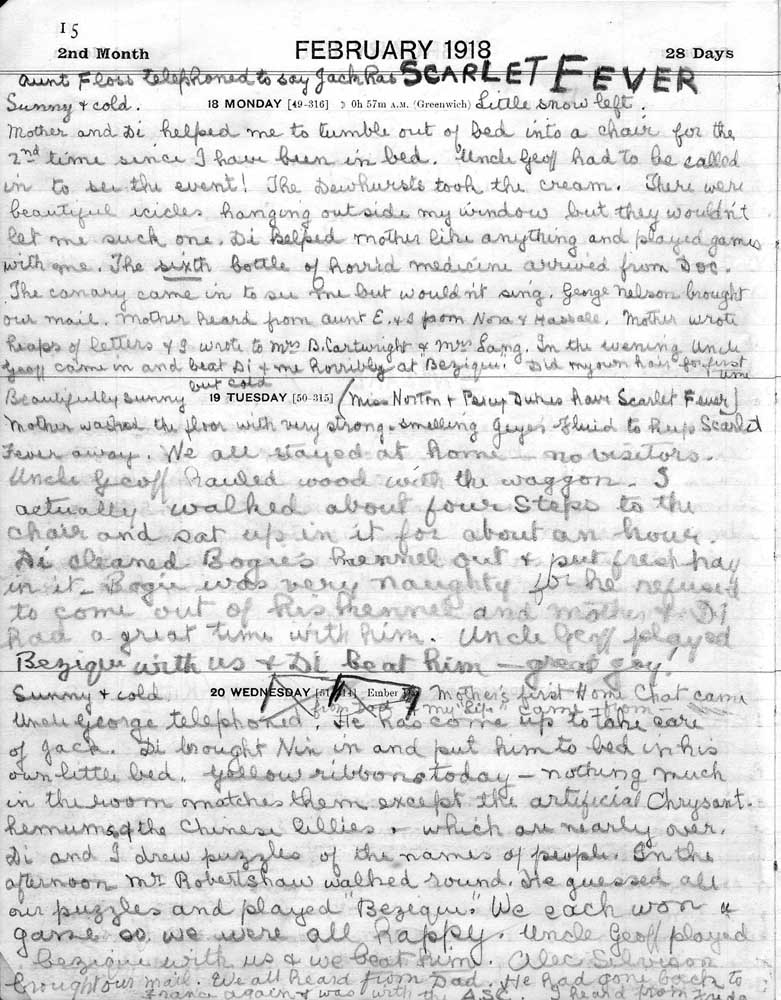 15
2nd Month FEBRUARY 1918 28 Days
Aunt Floss telephoned to say Jack has SCARLET FEVER
Sunny & cold. 18 MONDAY [49-316] ☽ 0h 57m A.M. (Greenwich) Little snow left.
Mother and Di helped me to tumble out of bed into a chair for the
2nd time since I have been in bed. Uncle Geoff had to be called
in to see the event! The Dewhursts took the cream. There were
beautiful icicles hanging outside my window but they wouldn't
let me suck one. Di helped mother like anything and played games
with me. The sixth bottle of horrid medicine arrived from Doc.
The canary came in to see me but wouldn't sing. George Nelson brought
our mail. Mother heard from Aunt E. & I from Nora & Hassall. Mother wrote
heaps of letters & I wrote to Mrs B. Cartwright & Mrs Lang. In the evening Uncle
Geoff came in and beat Di & me horribly at "Bezique." Did my own hair for first
time
Beautifully sunny but cold 19 TUESDAY [50-315] (Miss Norton & Percy Dukes have Scarlet Fever)
Mother washed the floor with very strong-smelling Geyes Fluid to keep Scarlet
Fever away. We all stayed at home – no visitors.
Uncle Geoff hauled wood with the waggon. I
actually walked about four steps to the
chair and sat up in it for about an hour.
Di cleaned Bogie's kennel out & put fresh hay
in it. Bogie was very naughty for he refused
to come out of his kennel and mother & Di
had a great time with him. Uncle Geoff played
Bezique with us & Di beat him – great joy!
Sunny & cold 20 WEDNESDAY Ember Mother's first Home Chat came
from Dad & my "Life" came from –
Uncle George telephoned. He has come up to take care
of Jack. Di brought Nix in and put him to bed in his
own little bed. Yellow ribbons today – nothing much
in the room matches them except the artificial Chrysant-
hemums & the Chinese lillies, which are nearly over.
Di and I drew puzzles of the names of people. In the
afternoon Mr Robertshaw walked round. He guessed all
our puzzles and played "Bezique." We each won a
game so we were all happy. Uncle Geoff played
bezique with us & we beat him. Alec
brought our mail. We all heard from Dad. He had gone back to
France again & was with the A.S.C. I heard from